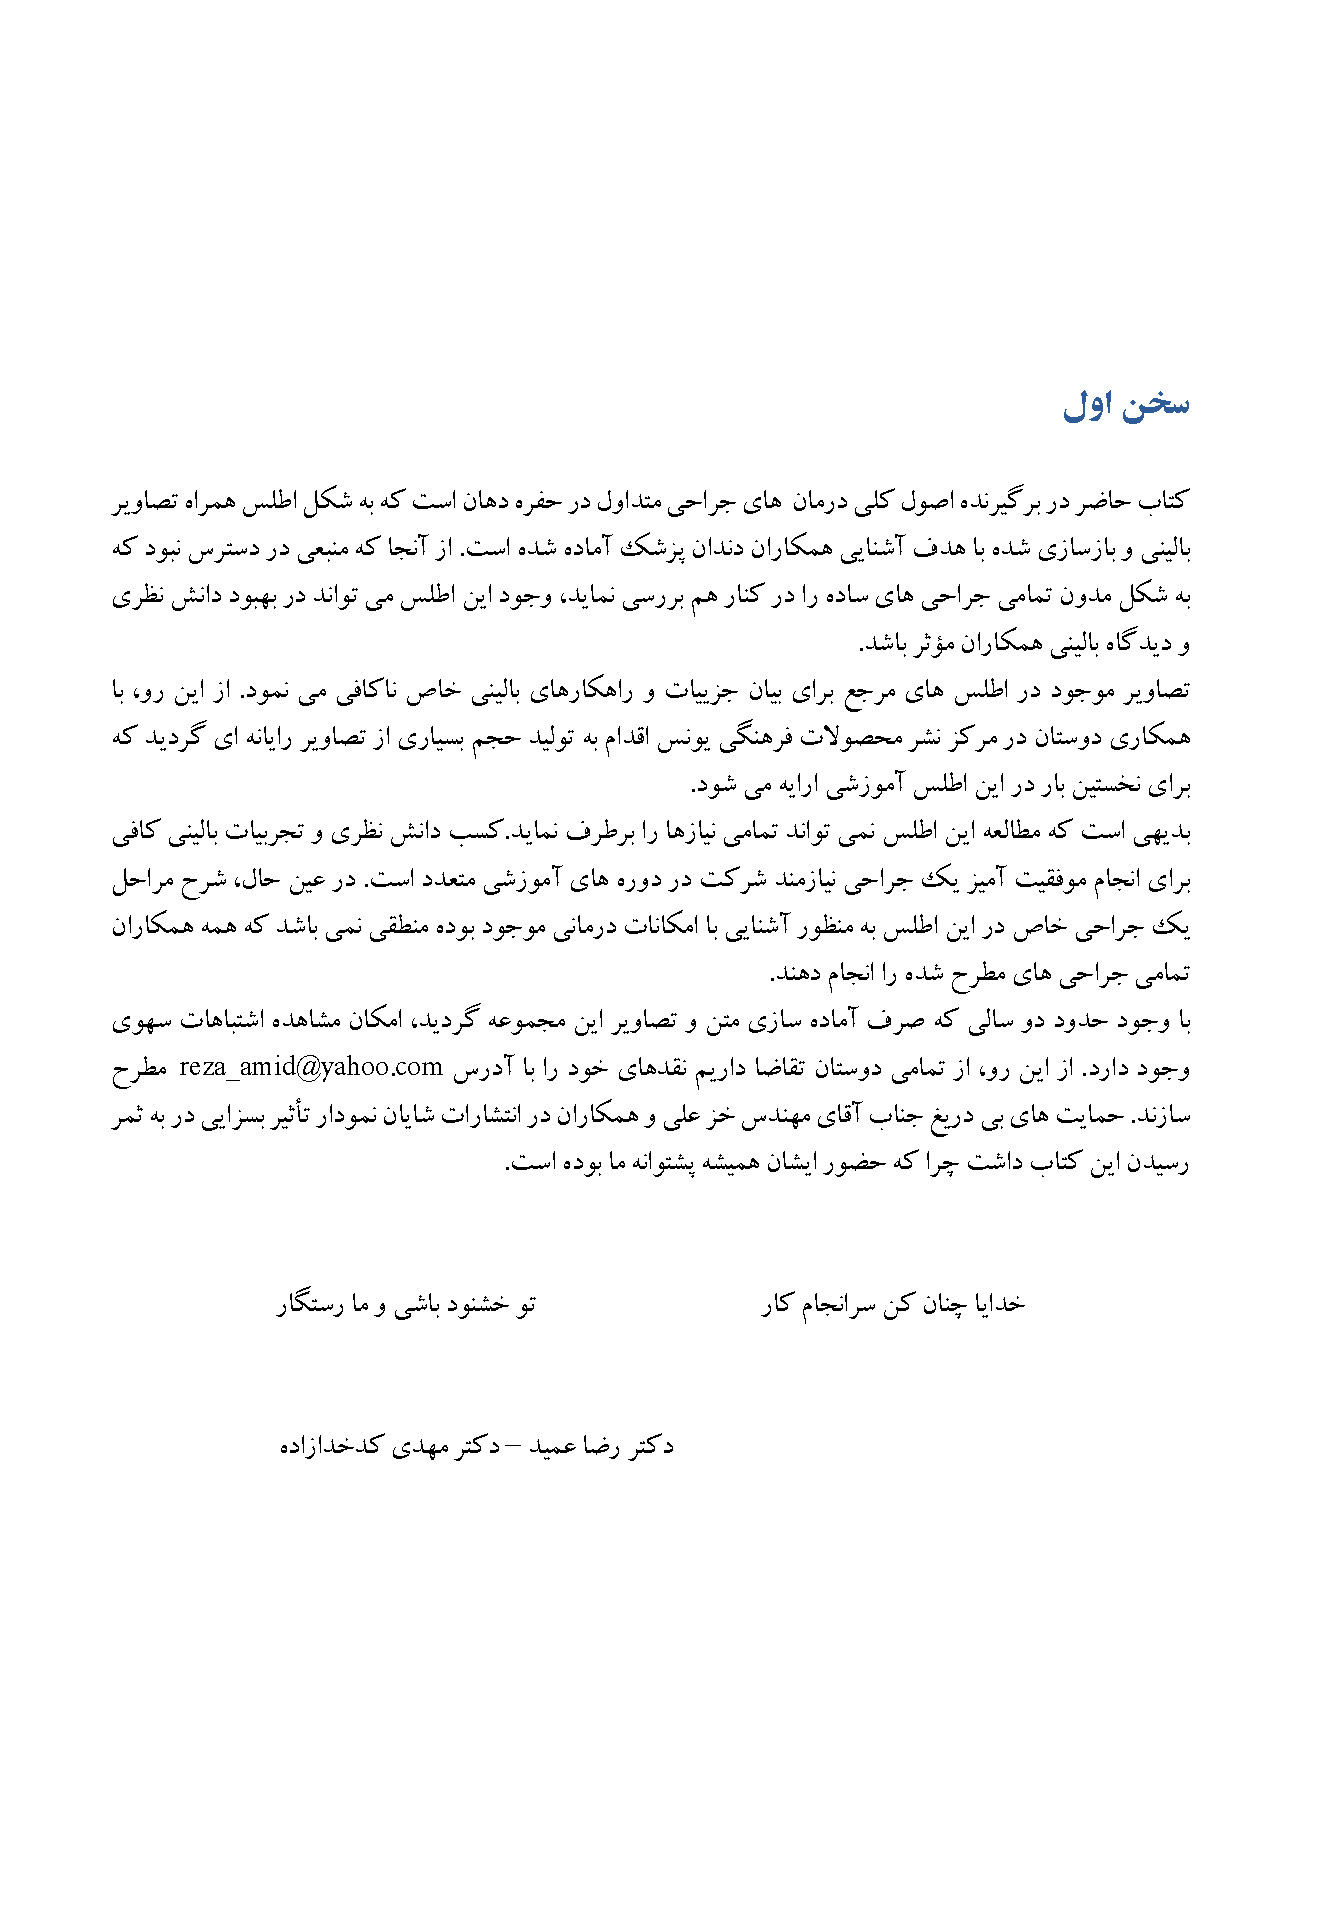 سخن اول
کتاب حاضر در برگیرنده اصول کلی درمان های جراحی متداول در حفره دهان است که به شکل اطلس همراه تصاویر
بالینی و بازسازی شده با هدف آشنایی همکاران دندان پزشک آماده شده است. از آنجا که منبعی در دسترس نبود که
به شکل مدون تمامی جراحی های ساده را در کنار هم بررسی نماید، وجود این اطلس می تواند در بهبود دانش نظری
و دیدگاه بالینی همکاران مؤثر باشد.
تصاویر موجود در اطلس های مرجع برای بیان جزییات و راهکارهای بالینی خاص ناکافی می نمود. از این رو، با
همکاری دوستان در مرکز نشر محصولات فرهنگی یونس اقدام به تولید حجم بسیاری از تصاویر رایانه ای گردید که
برای نخستین بار در این اطلس آموزشی ارایه می شود.
بدیهی است که مطالعه این اطلس نمی تواند تمامی نیازها را برطرف نماید.کسب دانش نظری و تجربیات بالینی کافی
برای انجام موفقیت آمیز یک جراحی نیازمند شرکت در دوره های آموزشی متعدد است. در عین حال، شرح مراحل
یک جراحی خاص در این اطلس به منظور آشنایی با امکانات درمانی موجود بوده منطقی نمی باشد که همه همکاران
تمامی جراحی های مطرح شده را انجام دهند.
با وجود حدود دو سالی که صرف آماده سازی متن و تصاویر این مجموعه گردید، امکان مشاهده اشتباهات سهوی
وجود دارد. از این رو، از تمامی دوستان تقاضا داریم نقدهای خود را با آدرس reza_amid@yahoo.com مطرح
سازند. حمایت های بی دریغ جناب آقای مهندس خز علی و همکاران در انتشارات شایان نمودار تأثیر بسزایی در به ثمر
رسیدن این کتاب داشت چرا که حضور ایشان همیشه پشتوانه ما بوده است.
خدایا چنان کن سرانجام کار تو خشنود باشی و ما رستگار
دکتر رضا عمید – دکتر مهدی کدخدازاده